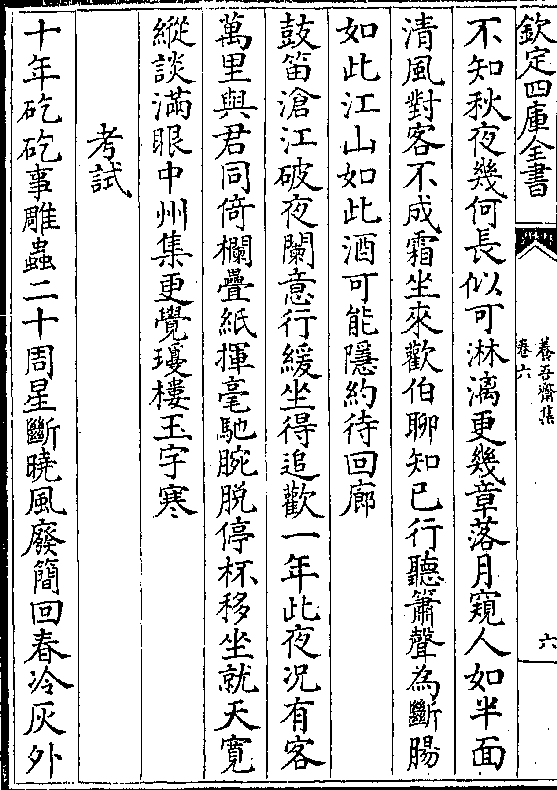 欽定四庫全書
養吾齋集
卷六
六
不知秋夜幾何長似可淋漓更幾章落月窺人如半面
清風對客不成霜坐來歡伯聊知已行聽簫聲為斷腸
如此江山如此酒可能隱約待回廊
鼓笛滄江破夜闌意行緩坐得追歡一年此夜況有客
萬里與君同倚欄疊紙揮毫馳腕脱停杯移坐就天寛
縱談滿眼中州集更覺瓊樓玉字寒
考試
十年矻矻事雕蟲二十周星斷曉風廢簡回春冷灰外